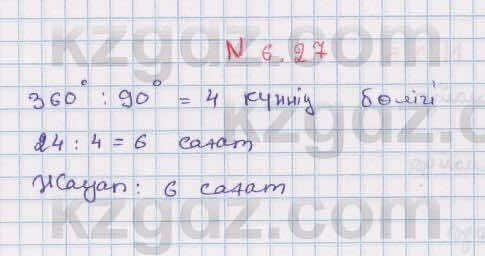 N 6.27
360° : 90° = 4 күннің бөлігі
24 : 4 = 6 сағат
Жауап: 6 сағат
kzgdz.com
kzgdz.com
kzgdz.com